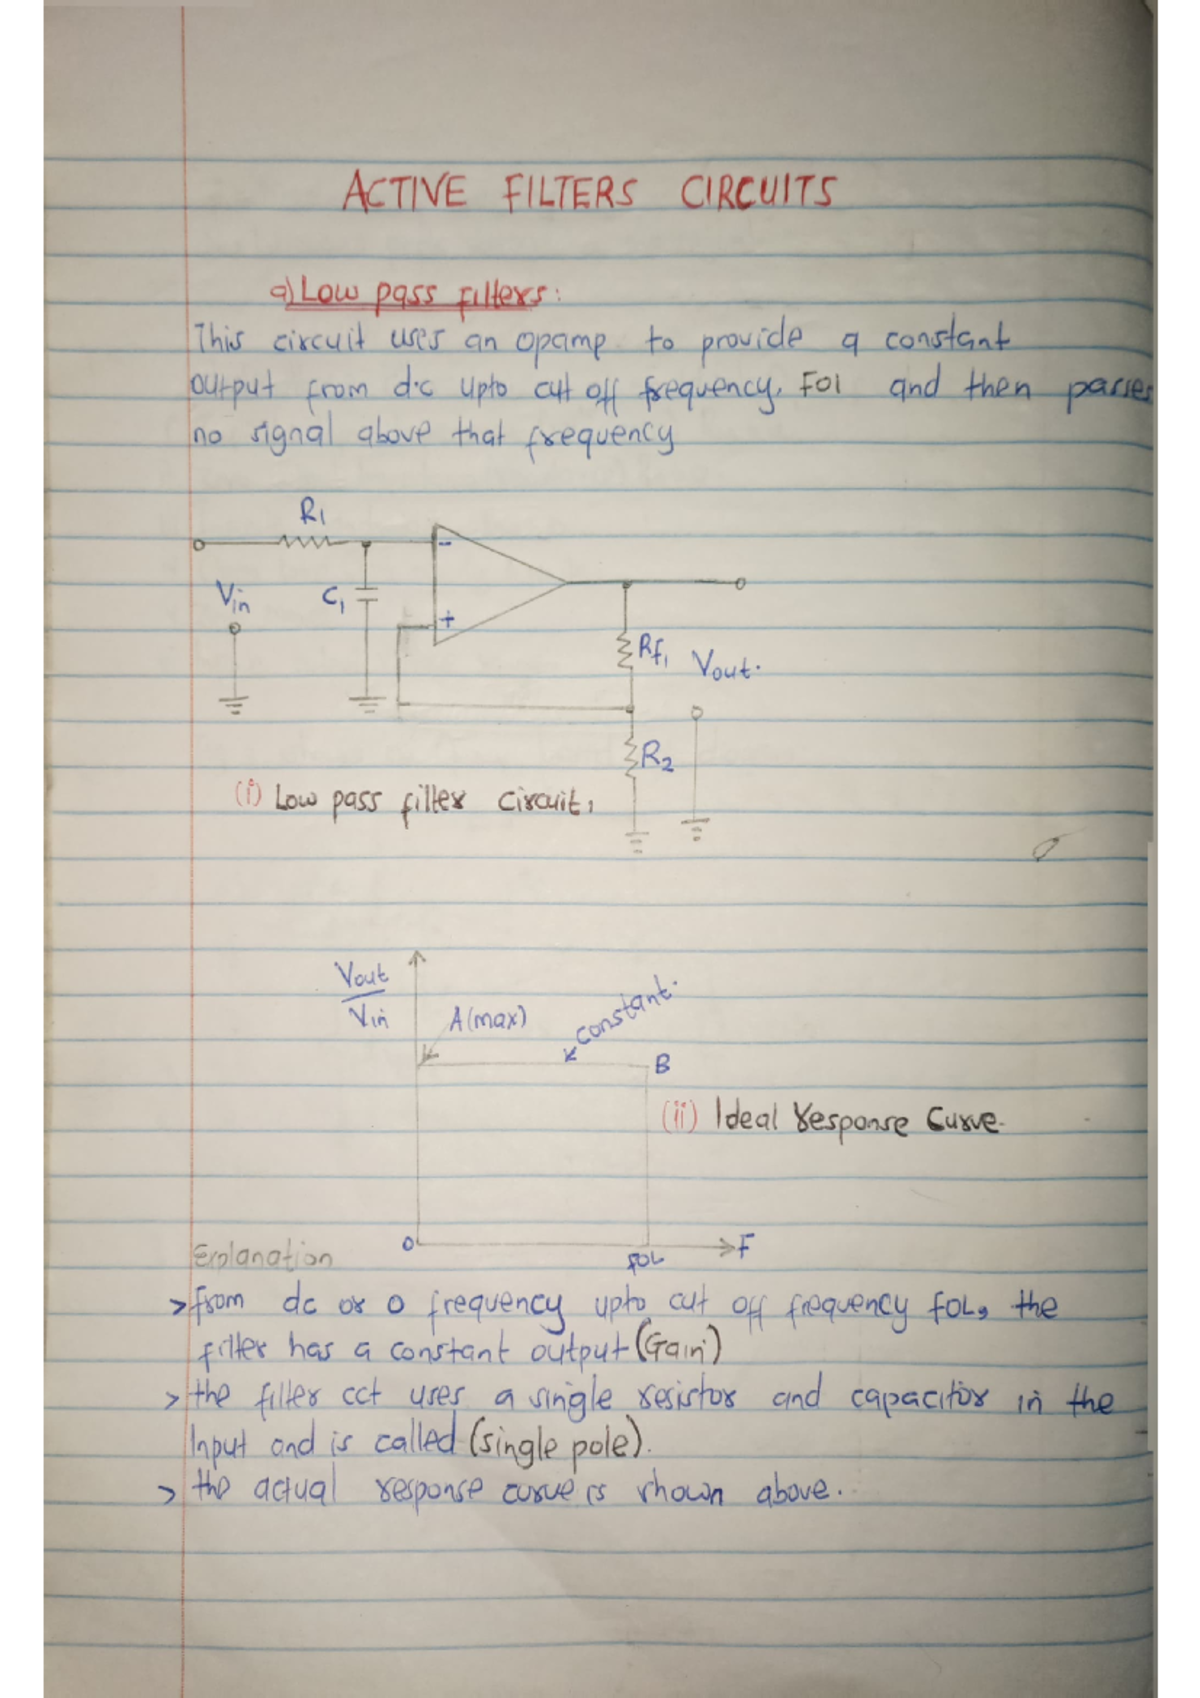 ACTIVE FILTERS CIRCUITS
a) Low pass filters:
This circuit uses an opamp to provide a constant
output from d.c upto cut off frequency, FOI and then passes
no signal above that frequency
R1
-
Vin
C1
+
Rf1
Vout.
R2
(i) Low pass filter circuit,
Vout
Vin
A(max)
constant.
B
(ii) Ideal response curve.
O
FOL
F
Explanation
> from dc or 0 frequency upto cut off frequency fOL, the
filter has a constant output (Gain)
> the filter cct uses a single resistor and capacitor in the
Input and is called (single pole).
> the actual response curve is shown above.